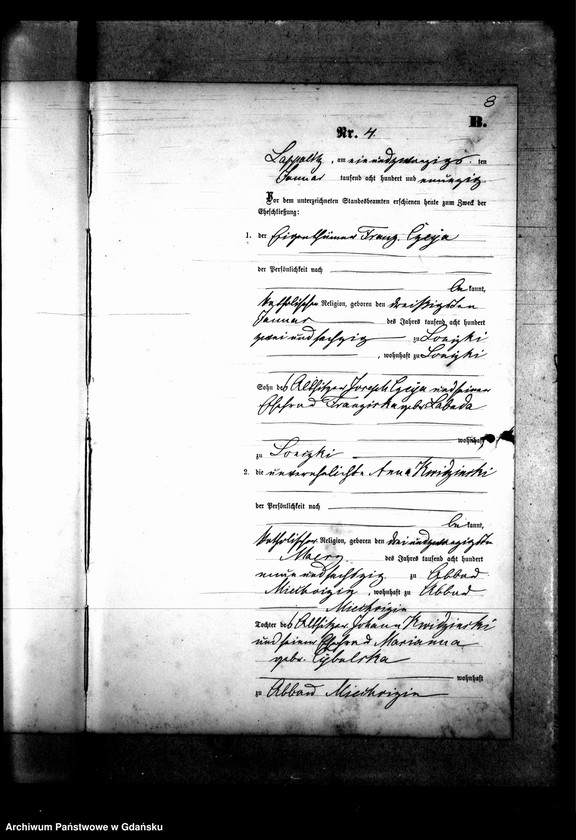 8
B.
Nr. 4.
am einundzwanzigsten
Januar tausend acht hundert und neunzig
Vor dem unterzeichneten Standesbeamten erschienen heute zum Zweck der
Eheschließung:
1. der Eigenthümer Franz
der Persönlichkeit nach
bekannt,
katholischer Religion, geboren den dreißigsten
Januar des Jahres tausend acht hundert
zwei und sechzig zu
, wohnhaft zu
Sohn des Altsitzer Joseph und seiner
Ehefrau Franziska geb. Labuda
wohnhaft
zu
2. die unverehelichte Anna Kwidzinski
der Persönlichkeit nach
bekannt,
katholischer Religion, geboren den dreiundzwanzigsten
Maerz des Jahres tausend acht hundert
neun und sechzig zu Abbau
, wohnhaft zu Abbau
Tochter des Altsitzer Johann Kwidzinski
und seiner Ehefrau Marianna
geb. Cybulska
wohnhaft
zu Abbau
Archiwum Państwowe w Gdańsku